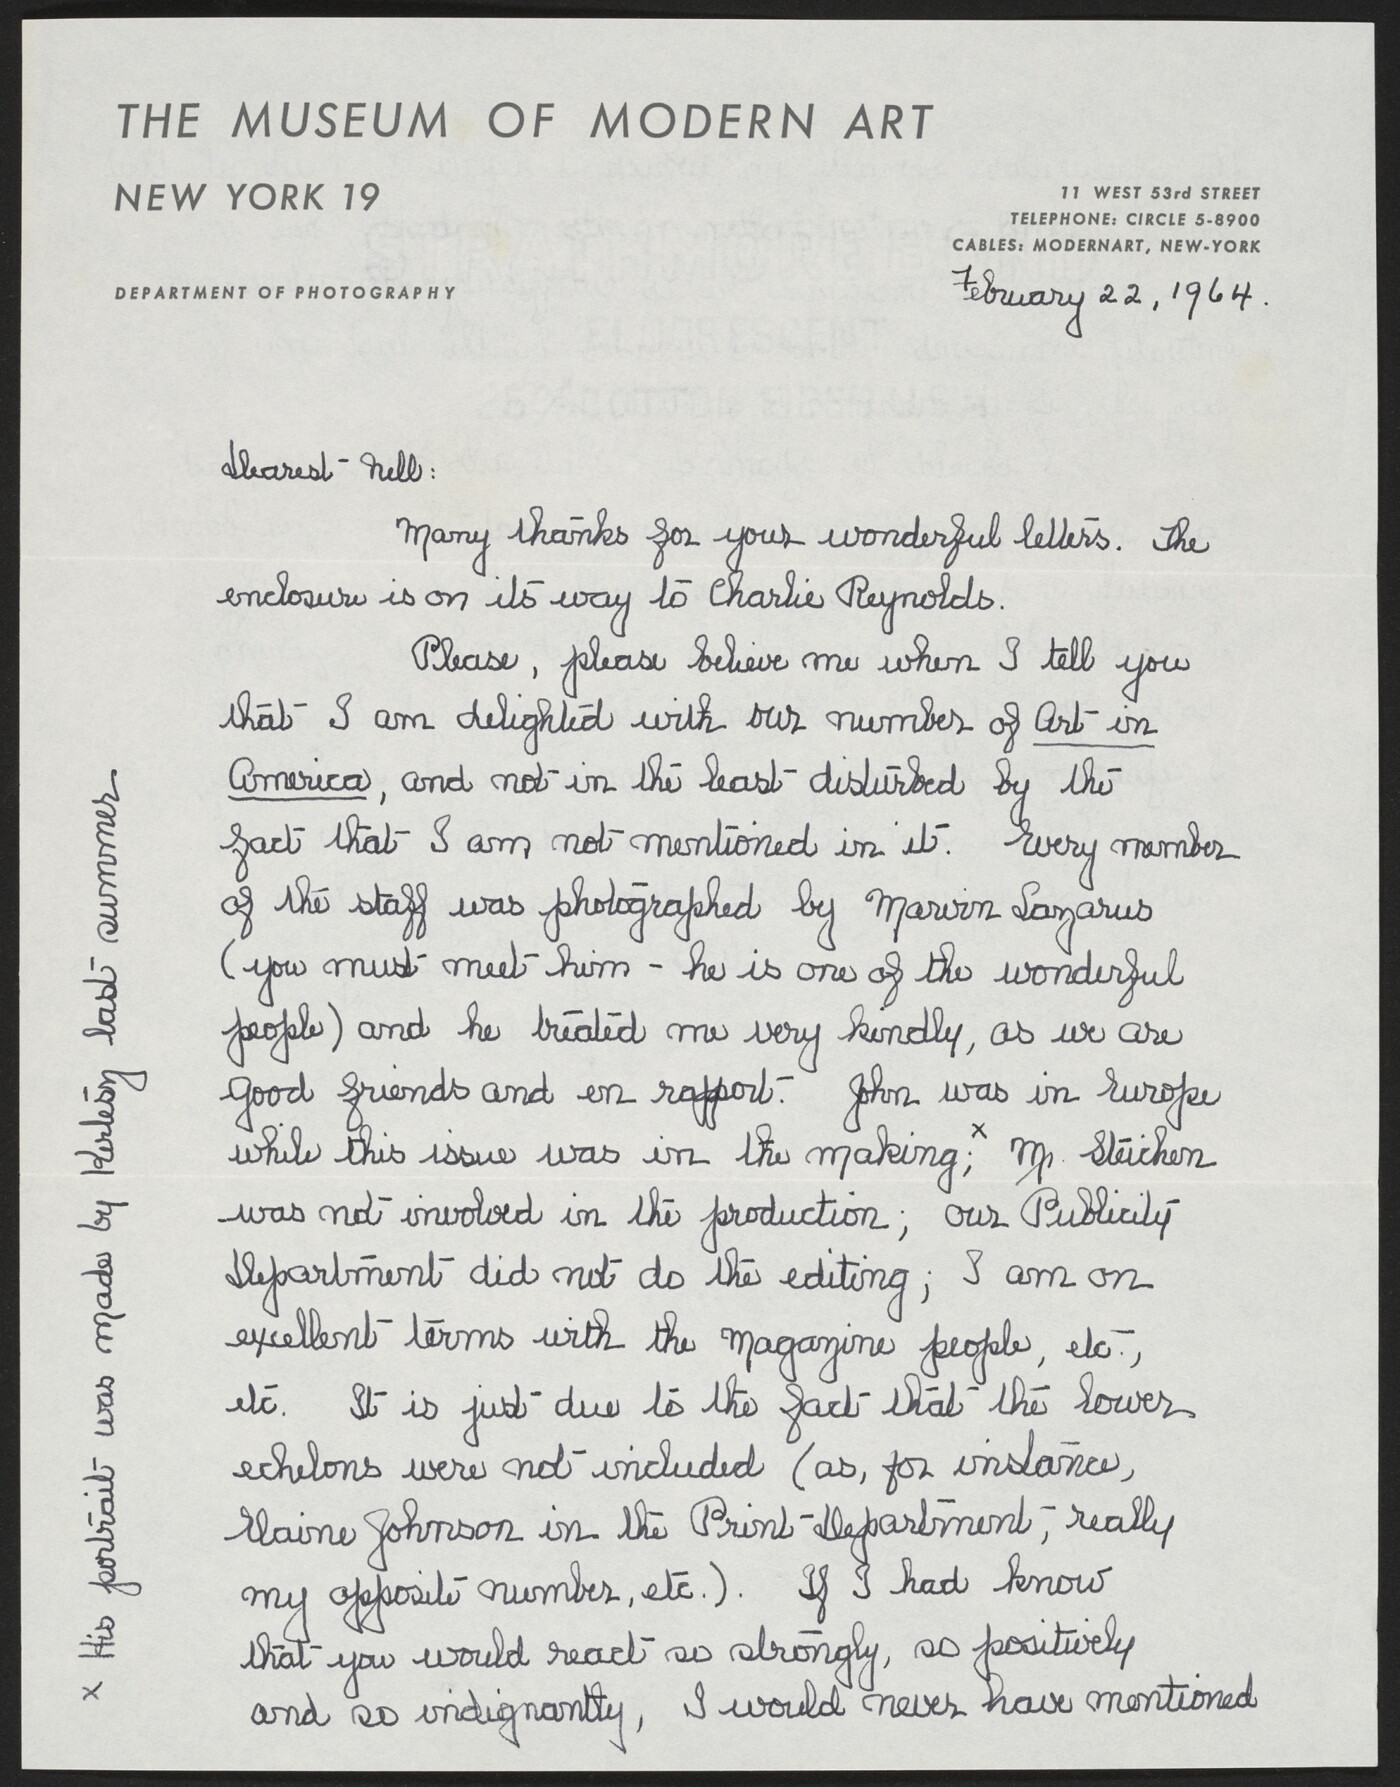 THE MUSEUM OF MODERN ART
NEW YORK 19
11 WEST 53rd STREET
TELEPHONE: CIRCLE 5-8900
CABLES: MODERNART, NEW-YORK
DEPARTMENT OF PHOTOGRAPHY
February 22, 1964.
Dearest Nell:
Many thanks for your wonderful letters. The
enclosure is on its way to Charlie Reynolds.
Please, please believe me when I tell you
that I am delighted with our number of Art in
America, and not in the least disturbed by the
fact that I am not mentioned in it. Every member
of the staff was photographed by Marvin Lazarus
(you must meet him - he is one of the wonderful
people) and he treated me very kindly, as we are
good friends and en rapport. John was in Europe
while this issue was in the making;x Mr. Steichen
was not involved in the production; our Publicity
Department did not do the editing; I am on
excellent terms with the magazine people, etc.,
etc. It is just due to the fact that the lower
echelons were not included (as, for instance,
Elaine Johnson in the Print Department, really
my opposite number, etc.). If I had know
that you would react so strongly, so positively
and so indignantly, I would never have mentioned
x His portrait was made by Kertész last summer